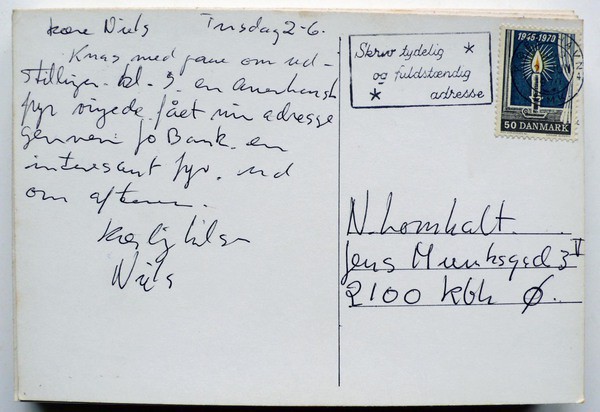 kære Niels Tirsdag 2-6.
Knas med pave om ud-
stillingen kl. 3. en Amerikansk
fyr fået min adresse
gennem Jo Bank. en
interesant fyr. ud
om aftenen.
Kærlig hilsen
Niels
Skriv tydelig
og fuldstændig
adresse
1945-1970
50 DANMARK
N. Lomholt.
Jens Munksgad 3 V
2100 Kbh Ø.